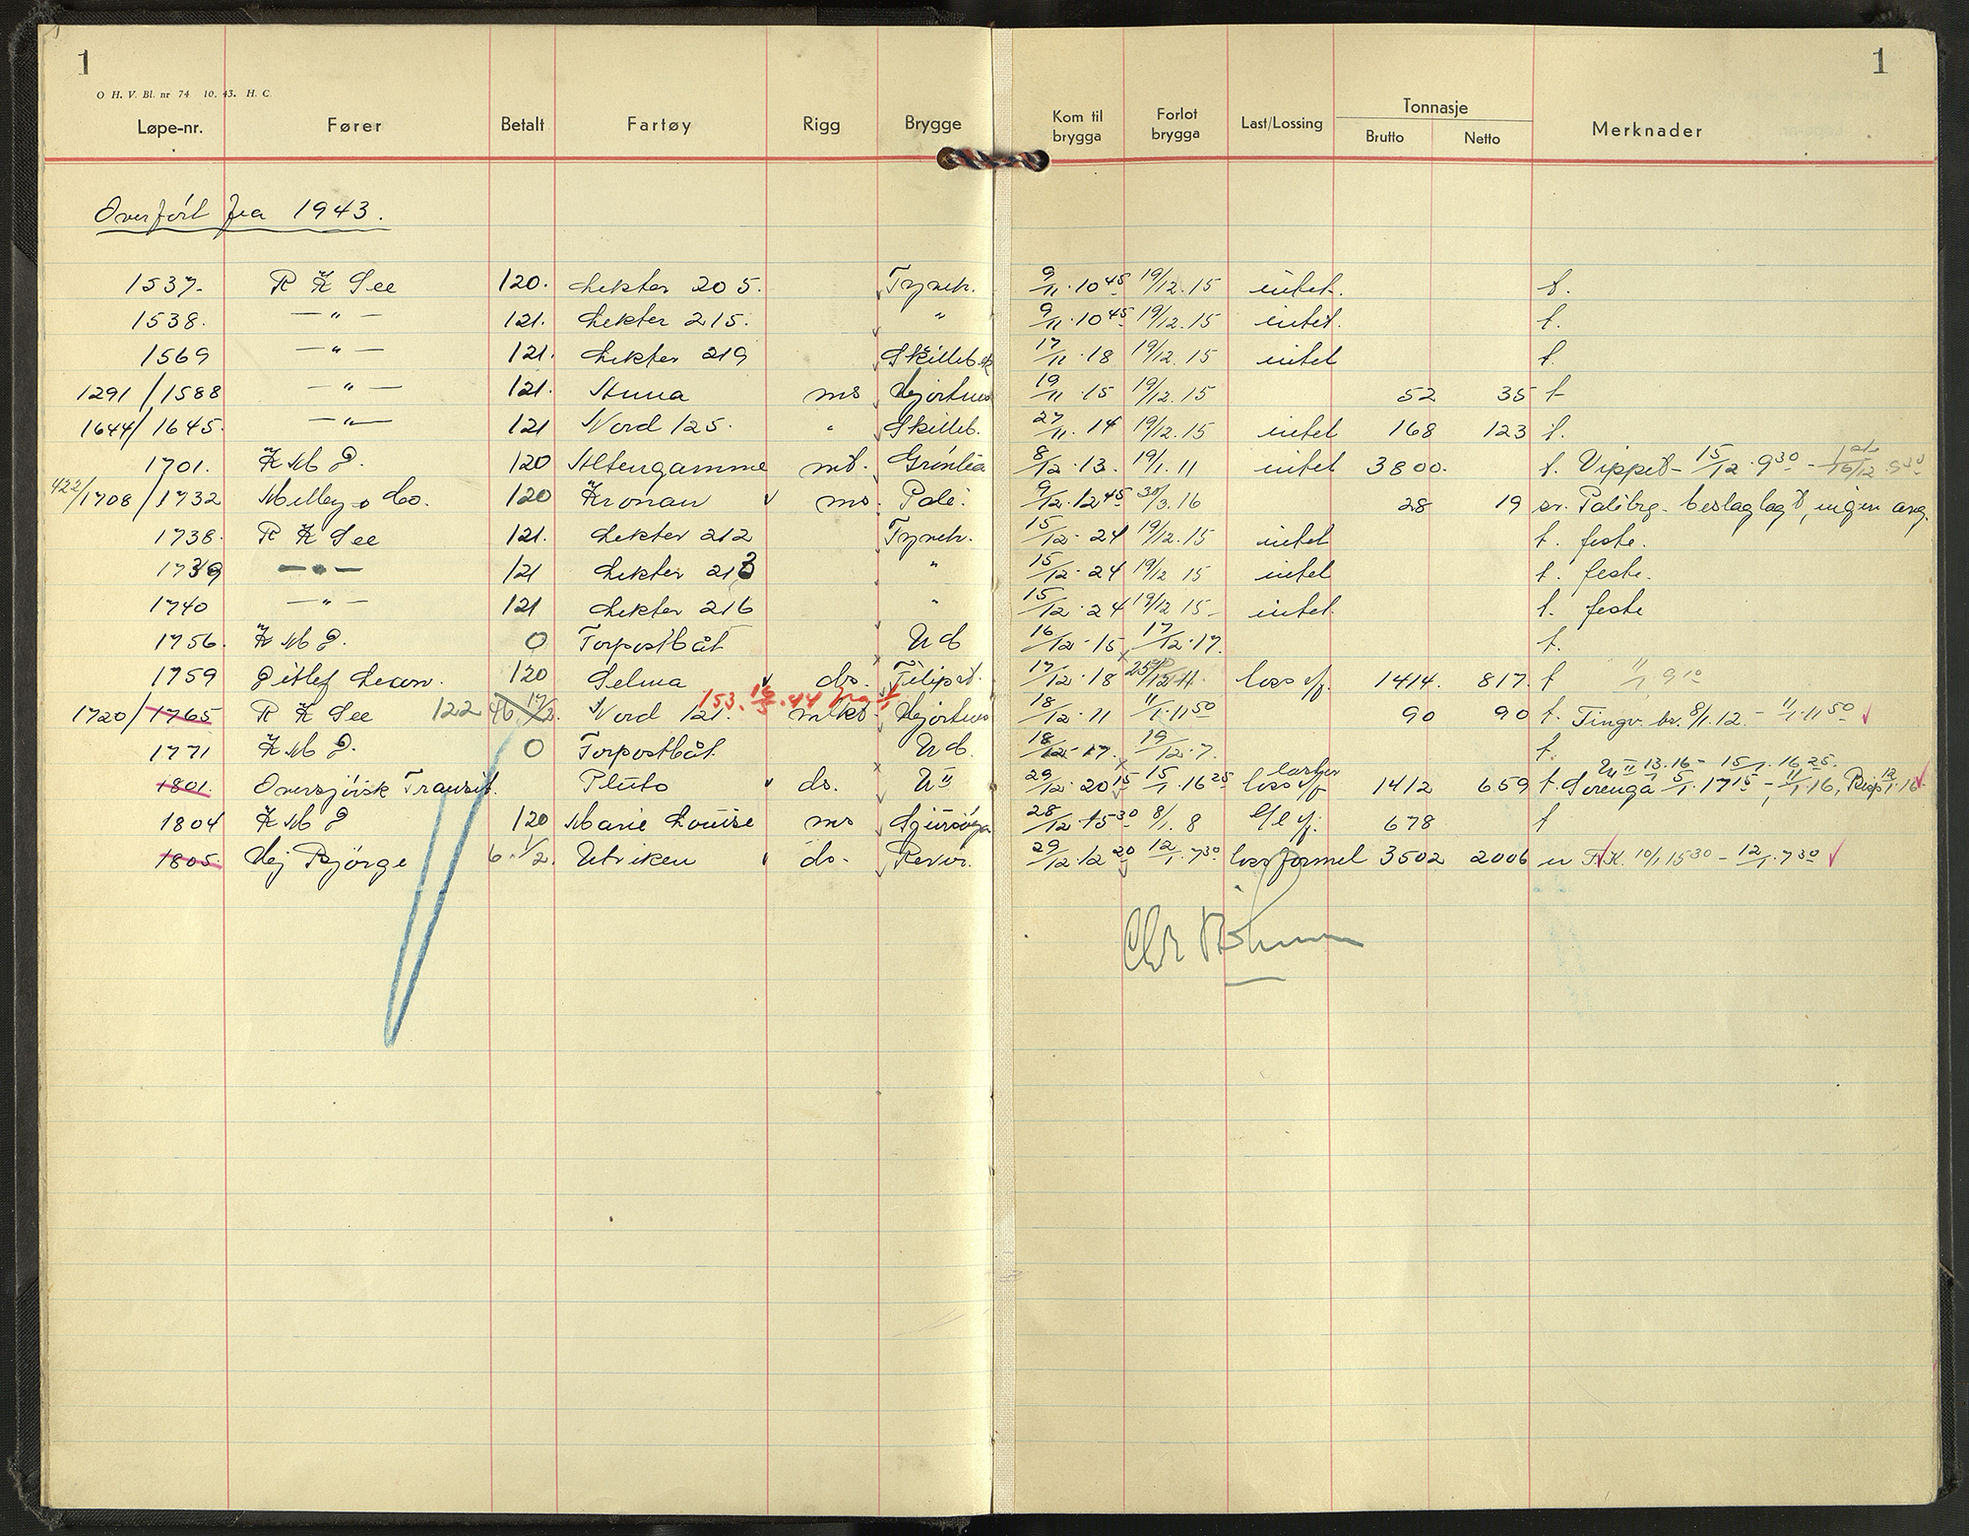 1 1
O H. V. Bl. nr 74 10. 43. H. C.
Løpe-nr. Fører Betalt Fartøy Rigg Brygge Kom til brygga Forlot brygga Last/Lossing Tonnasje Brutto Netto Merknader
Overført fra 1943.
1537. R K See 120. Lekter 205. Tyvch. 9/11 . 10 45 19/12. 15 intet. t.
1538. — " — 121. Lekter 215. " 9/11 . 10 45 19/12. 15 intet. t.
1569 — " — 121. Lekter 219 Skilleb. 17/11 . 18 19/12. 15 intet t.
1291 / 1588 — " — 121. ms Hjortnes 19/11 . 15 19/12. 15 52 35 t
1644 / 1645. — " — 121 Nord 125. " Skilleb. 27/11 . 14 19/12. 15 intet 168 123 t.
1701. K M D. 120 Altengamme mt. Grønlia 8/12 . 13. 19/1. 11 intet 3800. t. Vippet - 15/12 . 9 30 -
422/1708 / 1732 Co. 120 Kronan ms. Pale. 9/12 . 12 45 30/3. 16 28 19 Palébrg. beslaglagt, ingen avg.
1738. R K See 121. Lekter 212 15/12 . 24 19/12. 15 intet t. feste.
1739 — " — 121 Lekter 213 " 15/12 . 24 19/12 15 intet t. feste.
1740 — " — 121 Lekter 216 " 15/12 . 24 19/12 15 intet. t. feste
1756. K M D. 0 Forpostbåt U d 16/12 . 15 17/12 . 17. t.
1759 Ditlef Lexow. 120 Selma ds. Filipst. 17/12 . 18 loss 1414. 817. t 11/1 9 10
1720 / 1765 R K See 122 Nord 121. Hjortnes 18/12 . 11 11/1 . 11 50 90 90 t. Tingv. br. 8/1. 12. - 11/1 . 11 50
1771 K M D. 0 Forpostbåt U d. 18/12 . 17. 19/12 . 7 t.
1801. Oversjøisk Transit. Pluto ds. U II 29/12 . 20 15 15/1 . 16 25 loss 1412 659 t. Sørenga 5/1 . 17 15 - 11/1 . 16,
1804 K M D 120 Marie Louise ms Sjursøya 28/12 . 15 30 8/1. 8 678 t
1805. Hej Bjørge Utviken ds. Revir. 29/12 . 12 20 12/1 . 7 30 loss formel 3502 2006 10/1 15 30 - 12/1 . 7 30